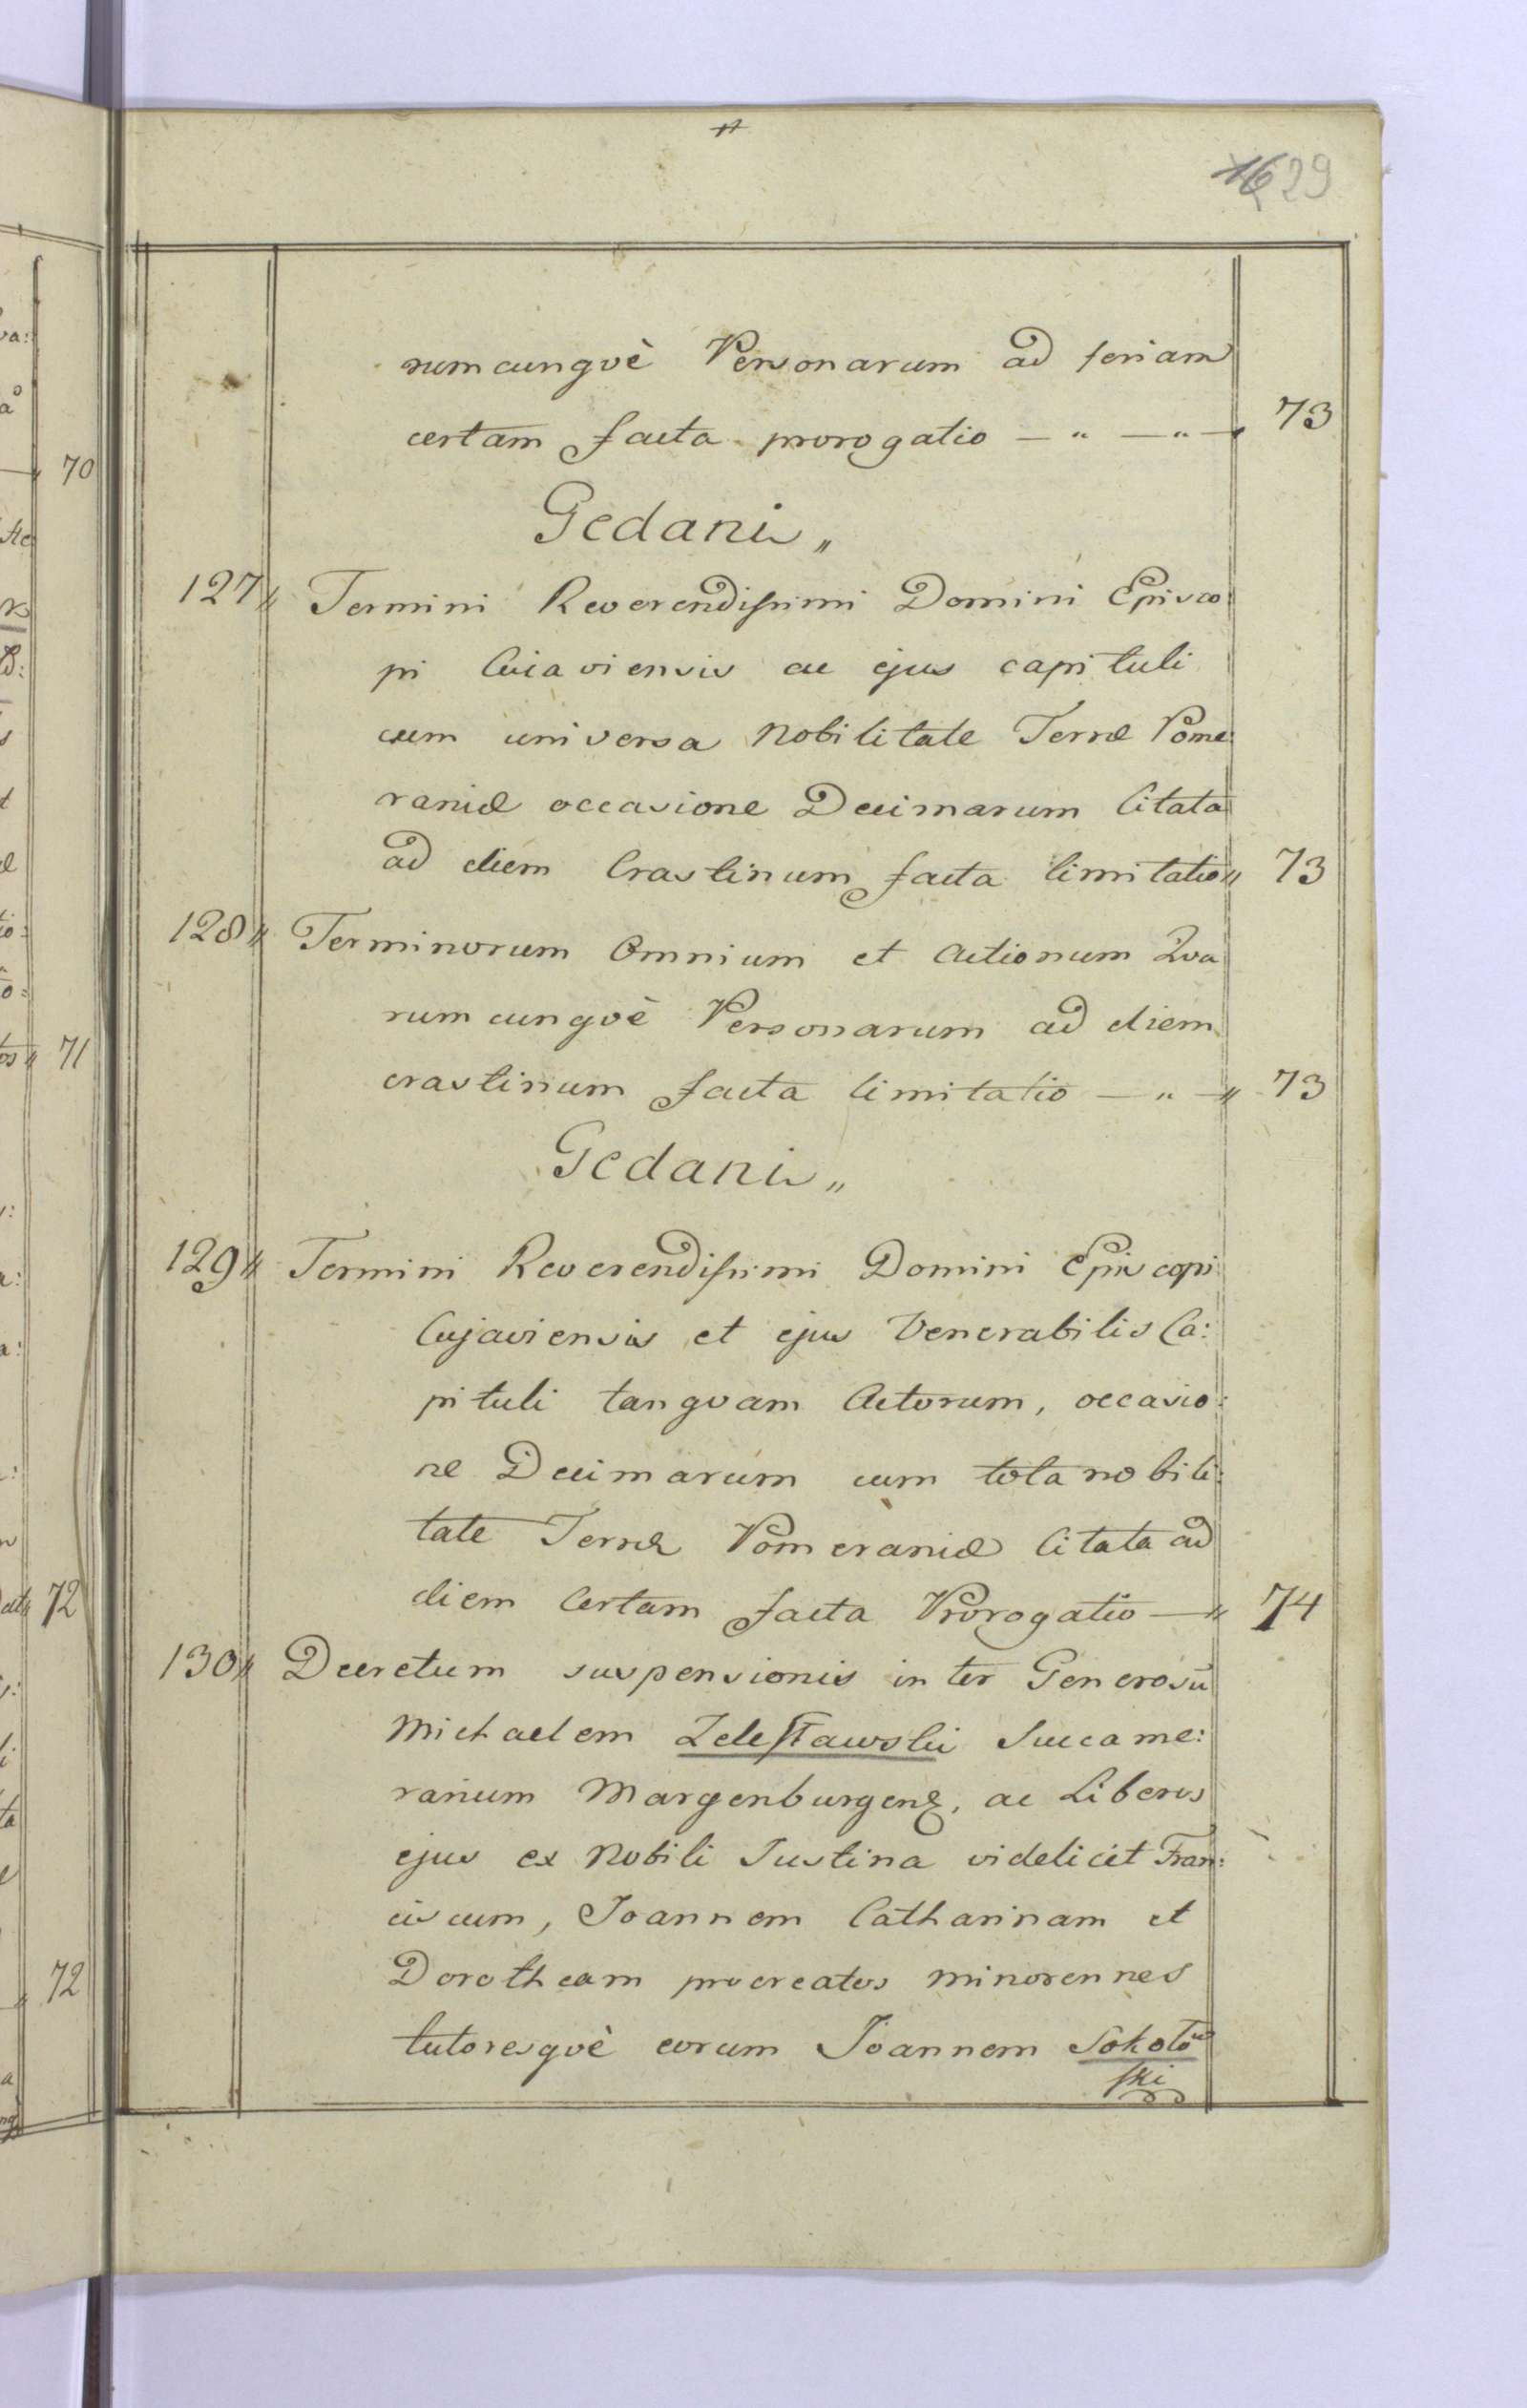 29
rumcunqvè Personarum ad feriam
certam facta prorogatio — " — " — 73
Gedani "
127 " Termini Reverendissimi Domini Episco:
pi Cuiaviensis ac ejus capituli
cum universa Nobilitate Terræ Pome:
raniæ occasione Decimarum Citata
ad diem Crastinum facta limitatio " 73
128 " Terminorum Omnium et Actionum Qva
rumcunqvè Personarum ad diem
crastinum facta limitatio — " — " 73
Gedani "
129 " Termini Reverendissimi Domini Episcopi
Cujaviensis et ejus Venerabilis Ca:
pituli tanqvam Actorum, occasio:
ne Decimarum cum tota nobili:
tate Terræ Pomeraniæ Citata ad
diem Certam facta Prorogatio — " 74
130 " Decretum suspensionis inter Generosū
Michaelem Zelestawski Succame:
rarium Margenburgens, ac Liberos
ejus ex Nobili Justina videlicet Fran:
ciscum, Joannem Catharinam et
Dorotheam procreatos minorennes
tutoresqvè eorum Joannem Sokołow
ski
70
71
72
72